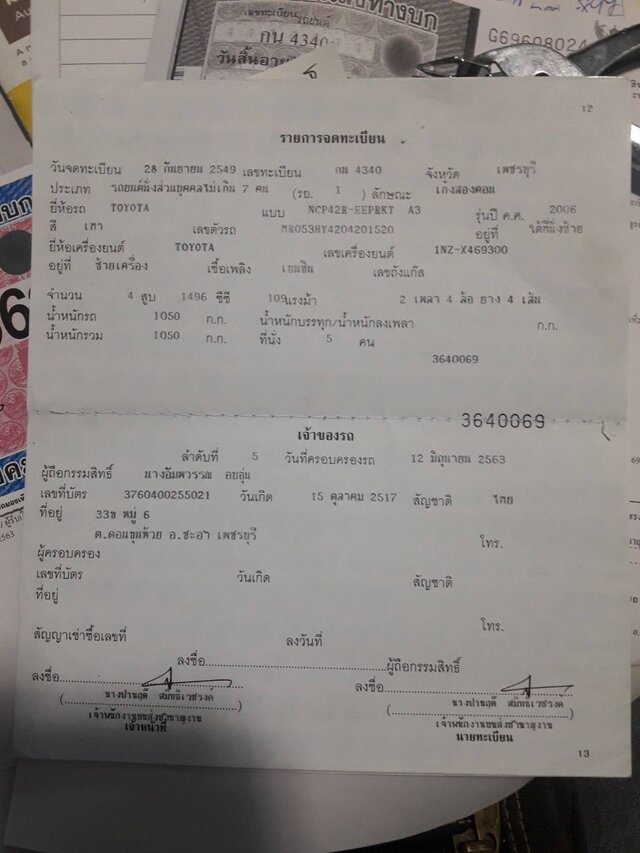 กน 4340
G69608024
12
รายการจดทะเบียน
วันจดทะเบียน 28 กันยายน 2549 เลขทะเบียน กน 4340 จังหวัด เพชรบุรี
ประเภท รถยนต์นั่งส่วนบุคคลไม่เกิน 7 คน (รย. 1 ) ลักษณะ เก๋งสองตอน
ยี่ห้อรถ TOYOTA แบบ NCP42R-EEPRKT A3 รุ่นปี ค.ศ. 2006
สี เทา เลขตัวรถ MR053HY4204201520 อยู่ที่ ใต้ที่นั่งซ้าย
ยี่ห้อเครื่องยนต์ TOYOTA เลขเครื่องยนต์ 1NZ-X469300
อยู่ที่ ซ้ายเครื่อง เชื้อเพลิง เบนซิน เลขถังแก๊ส
จำนวน 4 สูบ 1496 ซีซี 109แรงม้า 2 เพลา 4 ล้อ ยาง 4 เส้น
น้ำหนักรถ 1050 ก.ก. น้ำหนักบรรทุก/น้ำหนักลงเพลา ก.ก.
น้ำหนักรวม 1050 ก.ก. ที่นั่ง 5 คน
3640069
3640069
เจ้าของรถ
ลำดับที่ 5 วันที่ครอบครองรถ 12 มิถุนายน 2563
ผู้ถือกรรมสิทธิ์ นางอัมพวรรณ อบอุ่น
เลขที่บัตร 3760400255021 วันเกิด 15 ตุลาคม 2517 สัญชาติ ไทย
ที่อยู่ 33ข หมู่ 6
ต.ดอนขุนห้วย อ.ชะอำ เพชรบุรี โทร.
ผู้ครอบครอง
เลขที่บัตร วันเกิด สัญชาติ
ที่อยู่
โทร.
สัญญาเช่าซื้อเลขที่ ลงวันที่
ลงชื่อ ผู้ถือกรรมสิทธิ์
ลงชื่อ ลงชื่อ
เจ้าหน้าที่ นายทะเบียน
13